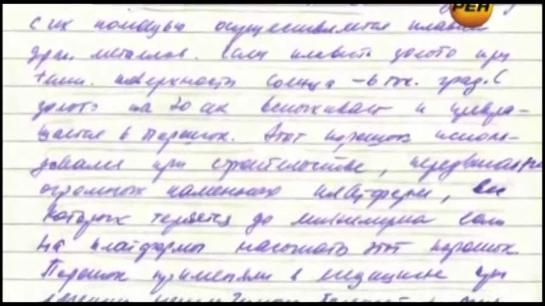 РЕН
с их помощью осуществляется плавка
драг. металлов. Если плавить золото при
темп. поверхности Солнца – 6 тыс. град. С
золото на 20 сек вспыхивает и превра-
щается в порошок. Этот порошок исполь-
зовали при строительстве, передвигали
огромных каменных платформ, вес
которых терялся до минимума если
на платформы насыпать этот порошок.
Порошок применяли в медицине при